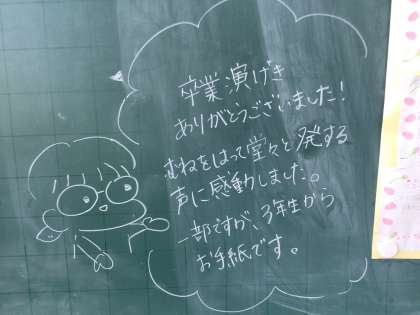 卒業演げき
ありがとうございました!
むねをはって堂々と発する
声に感動しました。
一部ですが、3年生から
お手紙です。